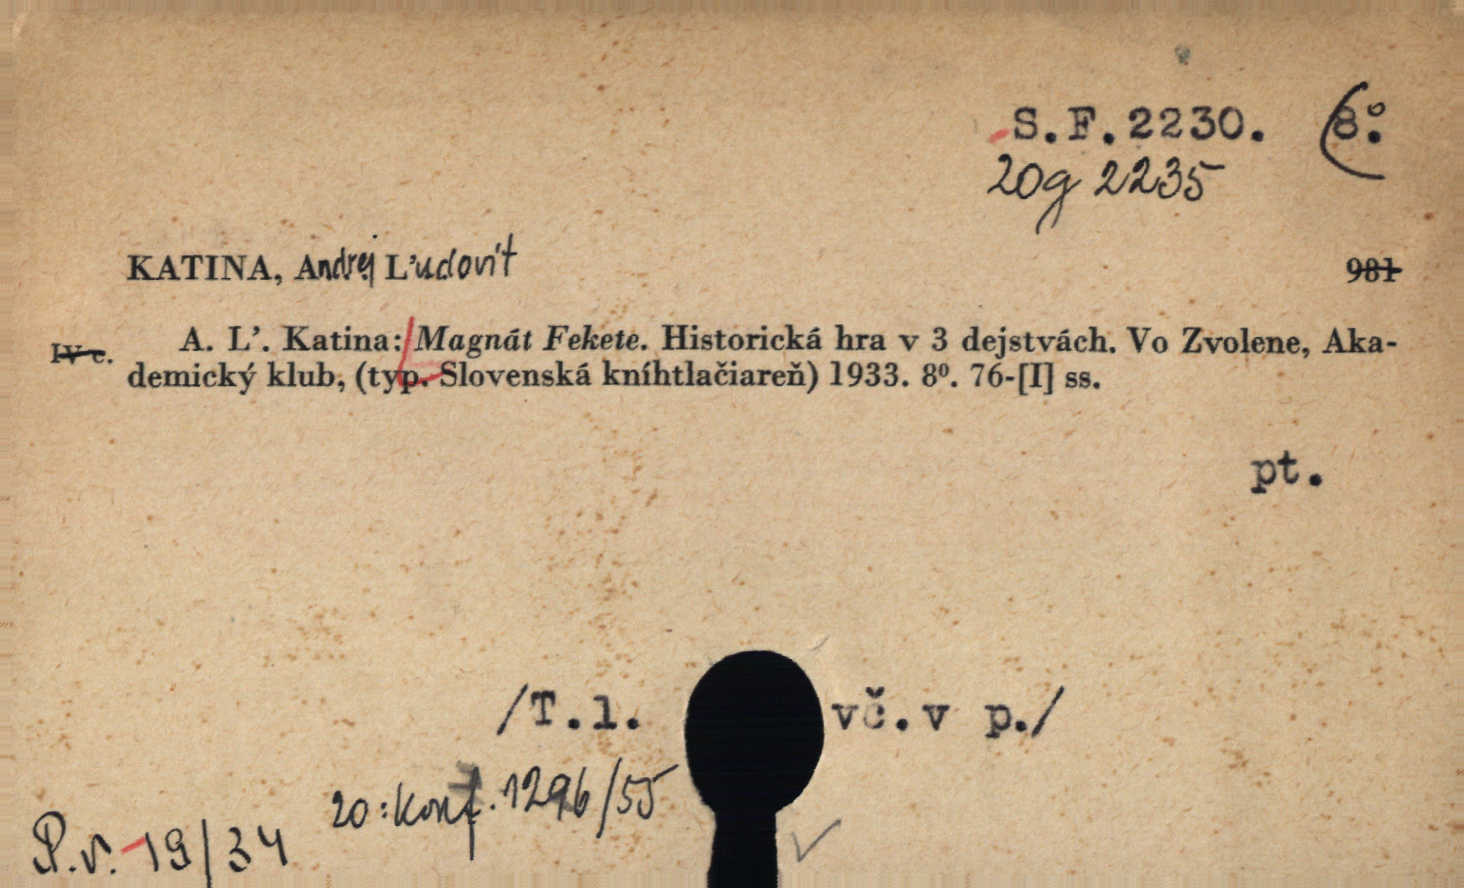 S.F.2230. 8°.
20g 2235
KATINA, Andrej Ľudovít 981
IV c. A. Ľ. Katina: Magnát Fekete. Historická hra v 3 dejstvách. Vo Zvolene, Aka-
demický klub, (typ. Slovenská kníhtlačiareň) 1933. 8⁰. 76-[I] ss.
pt.
/T.l. vč.v p./
20: konf. 1296/55
P.v. 19/34